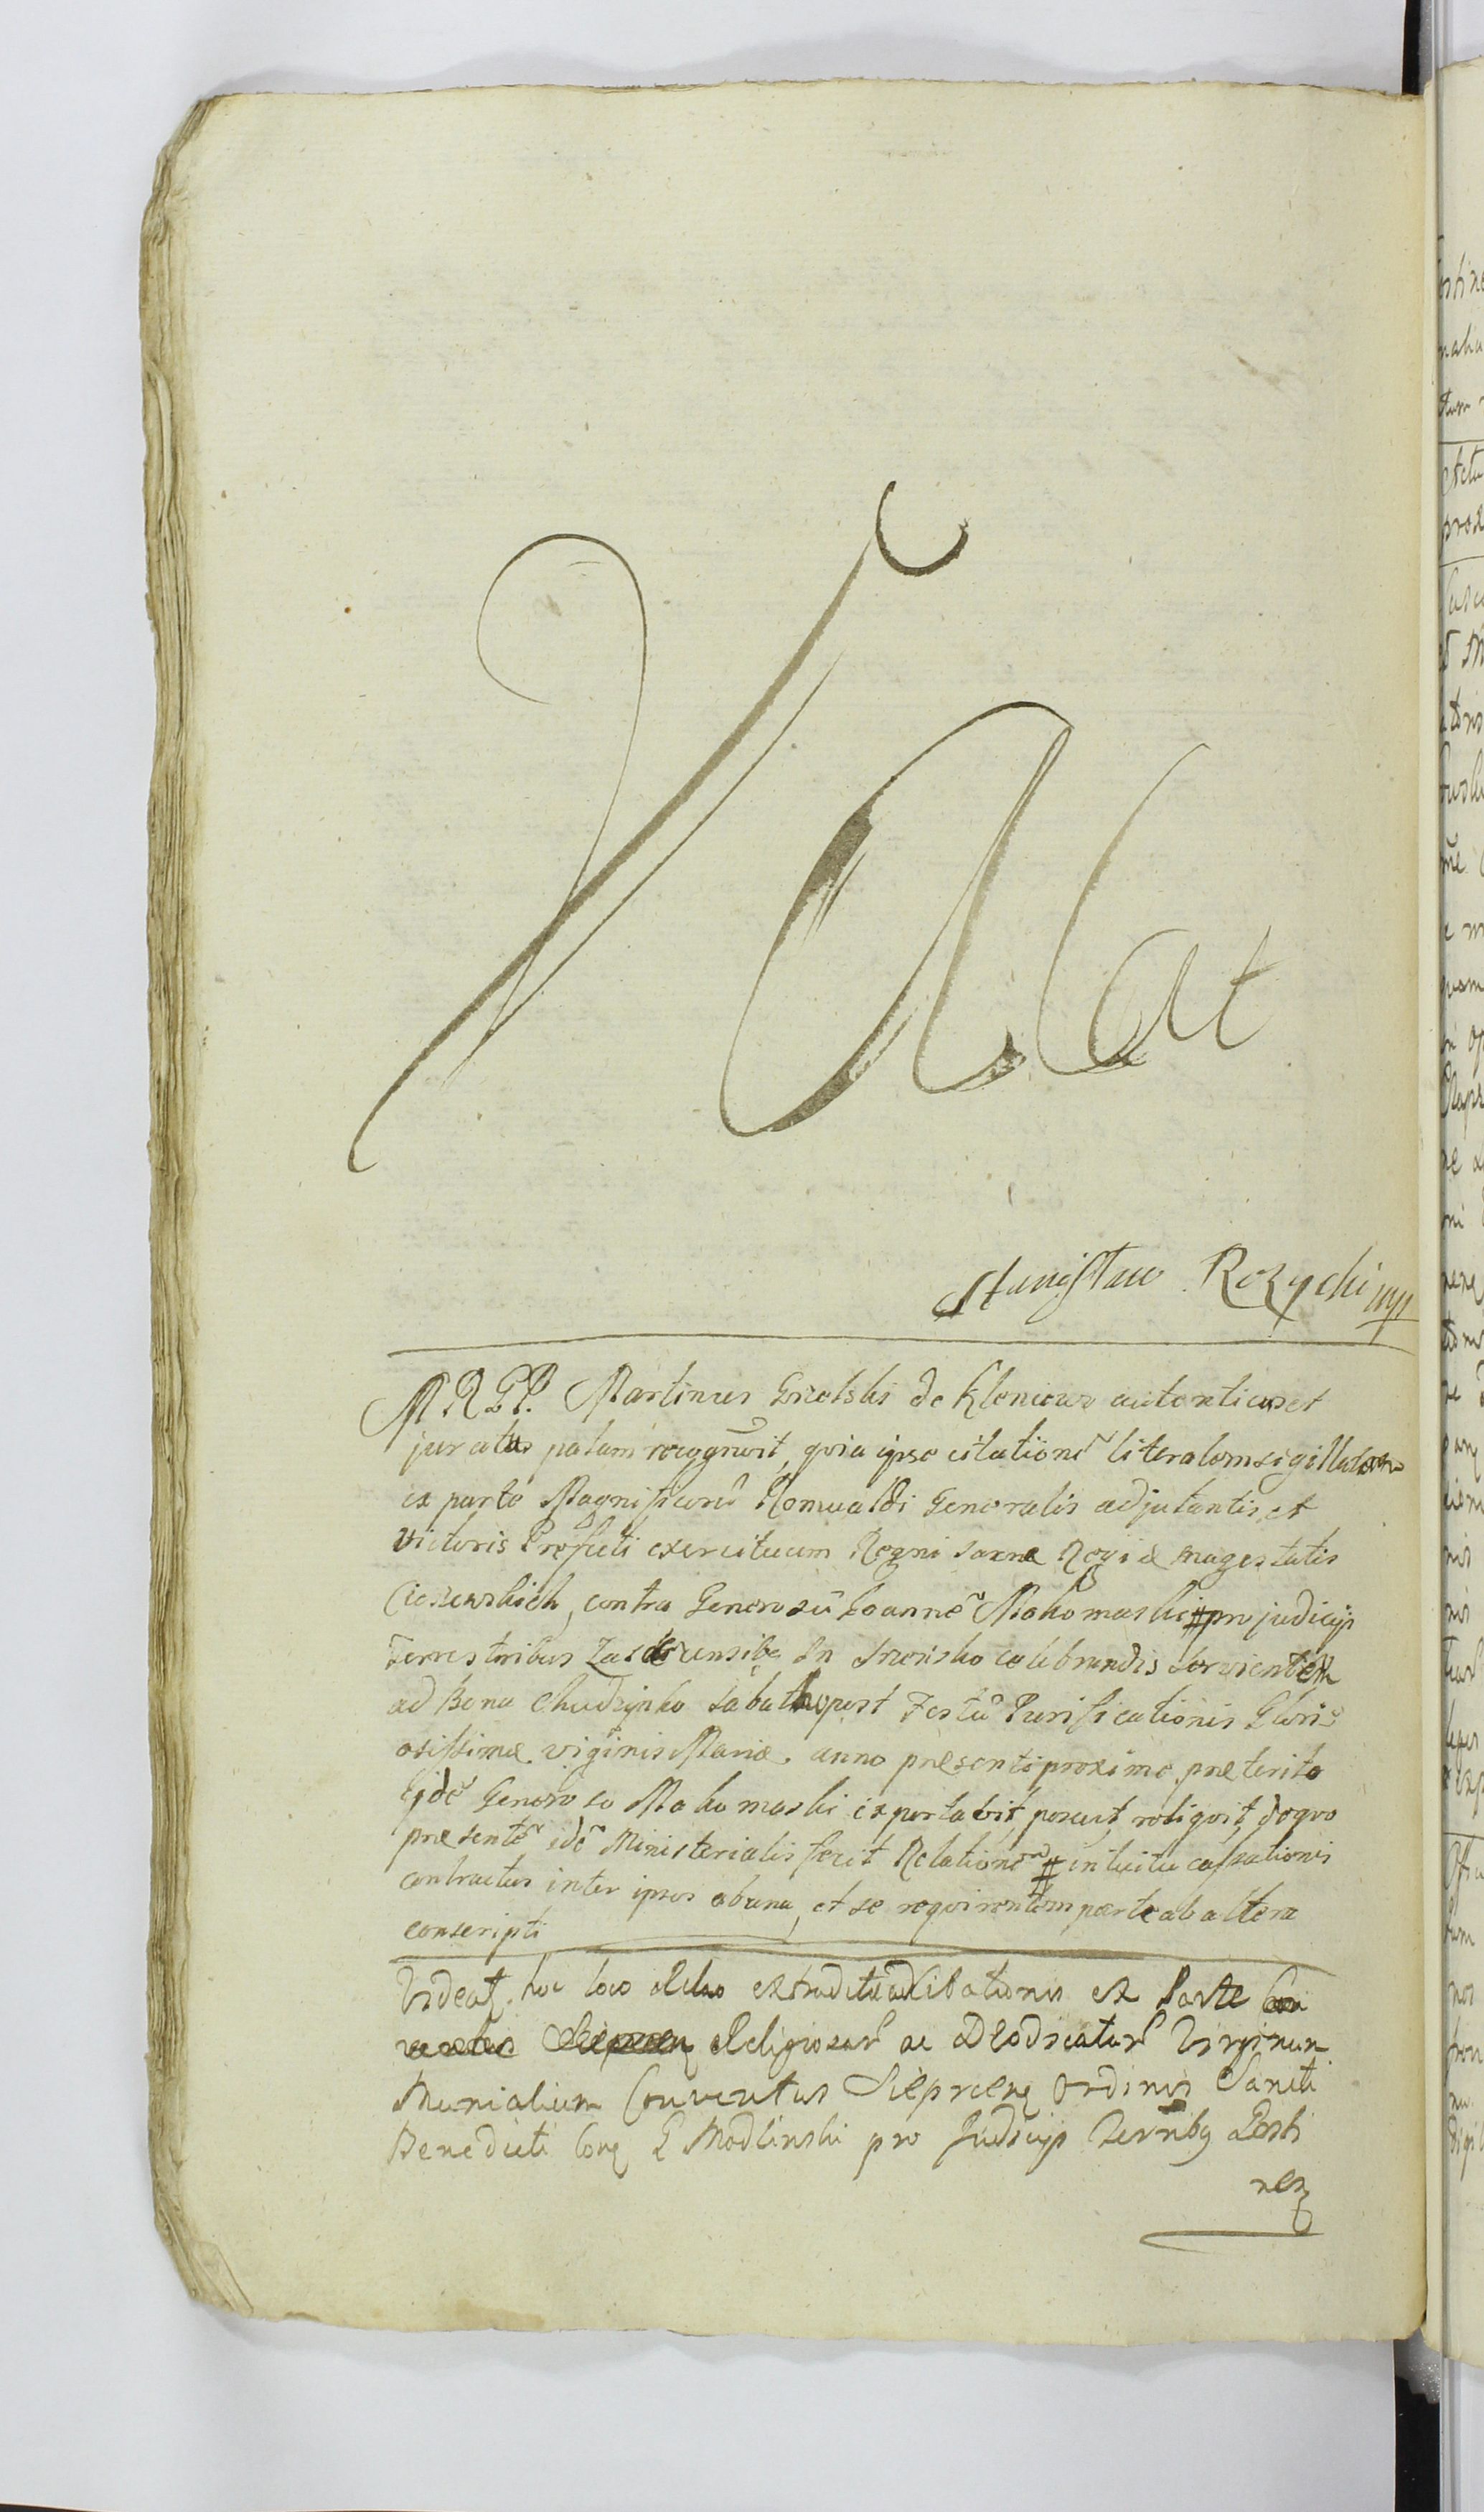 Vacat
Stanisław Rozycki mp
M R G P. Martinus Grotski de Kloniowo autenticus et
juratus palam recognovit, quia ipse citationẽ literalem sigillatam
ex parte Magnificorũ Romualdi Generalis adjutantis, et
Victoris Præfecti exercituum Regni Sacræ Regiæ magestatis
Cissewskich, contra Generosũ Joannẽ Mokomaski # pro judicijs
Terrestribus Zaskrzensibg in Srensko celebrandis servientem
ad Bona Chudzynko Sabatho post Festũ Purificationis Glori
osissimæ viginis Mariæ. anno præsenti proxime præterito
Eidẽ Generoso Mokomaski exportavit, posuit, reliquit, de quo
præsentẽ idẽ Ministerialis fecit Relationẽ # intuitu cassationis
contractus inter ipsos ab una, et se requirentem parte ab altera
conscripti
Videat, hoc loco extraditũ Citationis ex Parte
Religiosarũ ac Deo dicatarũ Virginum
Munialium Conventus Sieprcen Ordinis Sancti
Benedicti con G Modlinski pro Judicijs Terribg Posti
nen